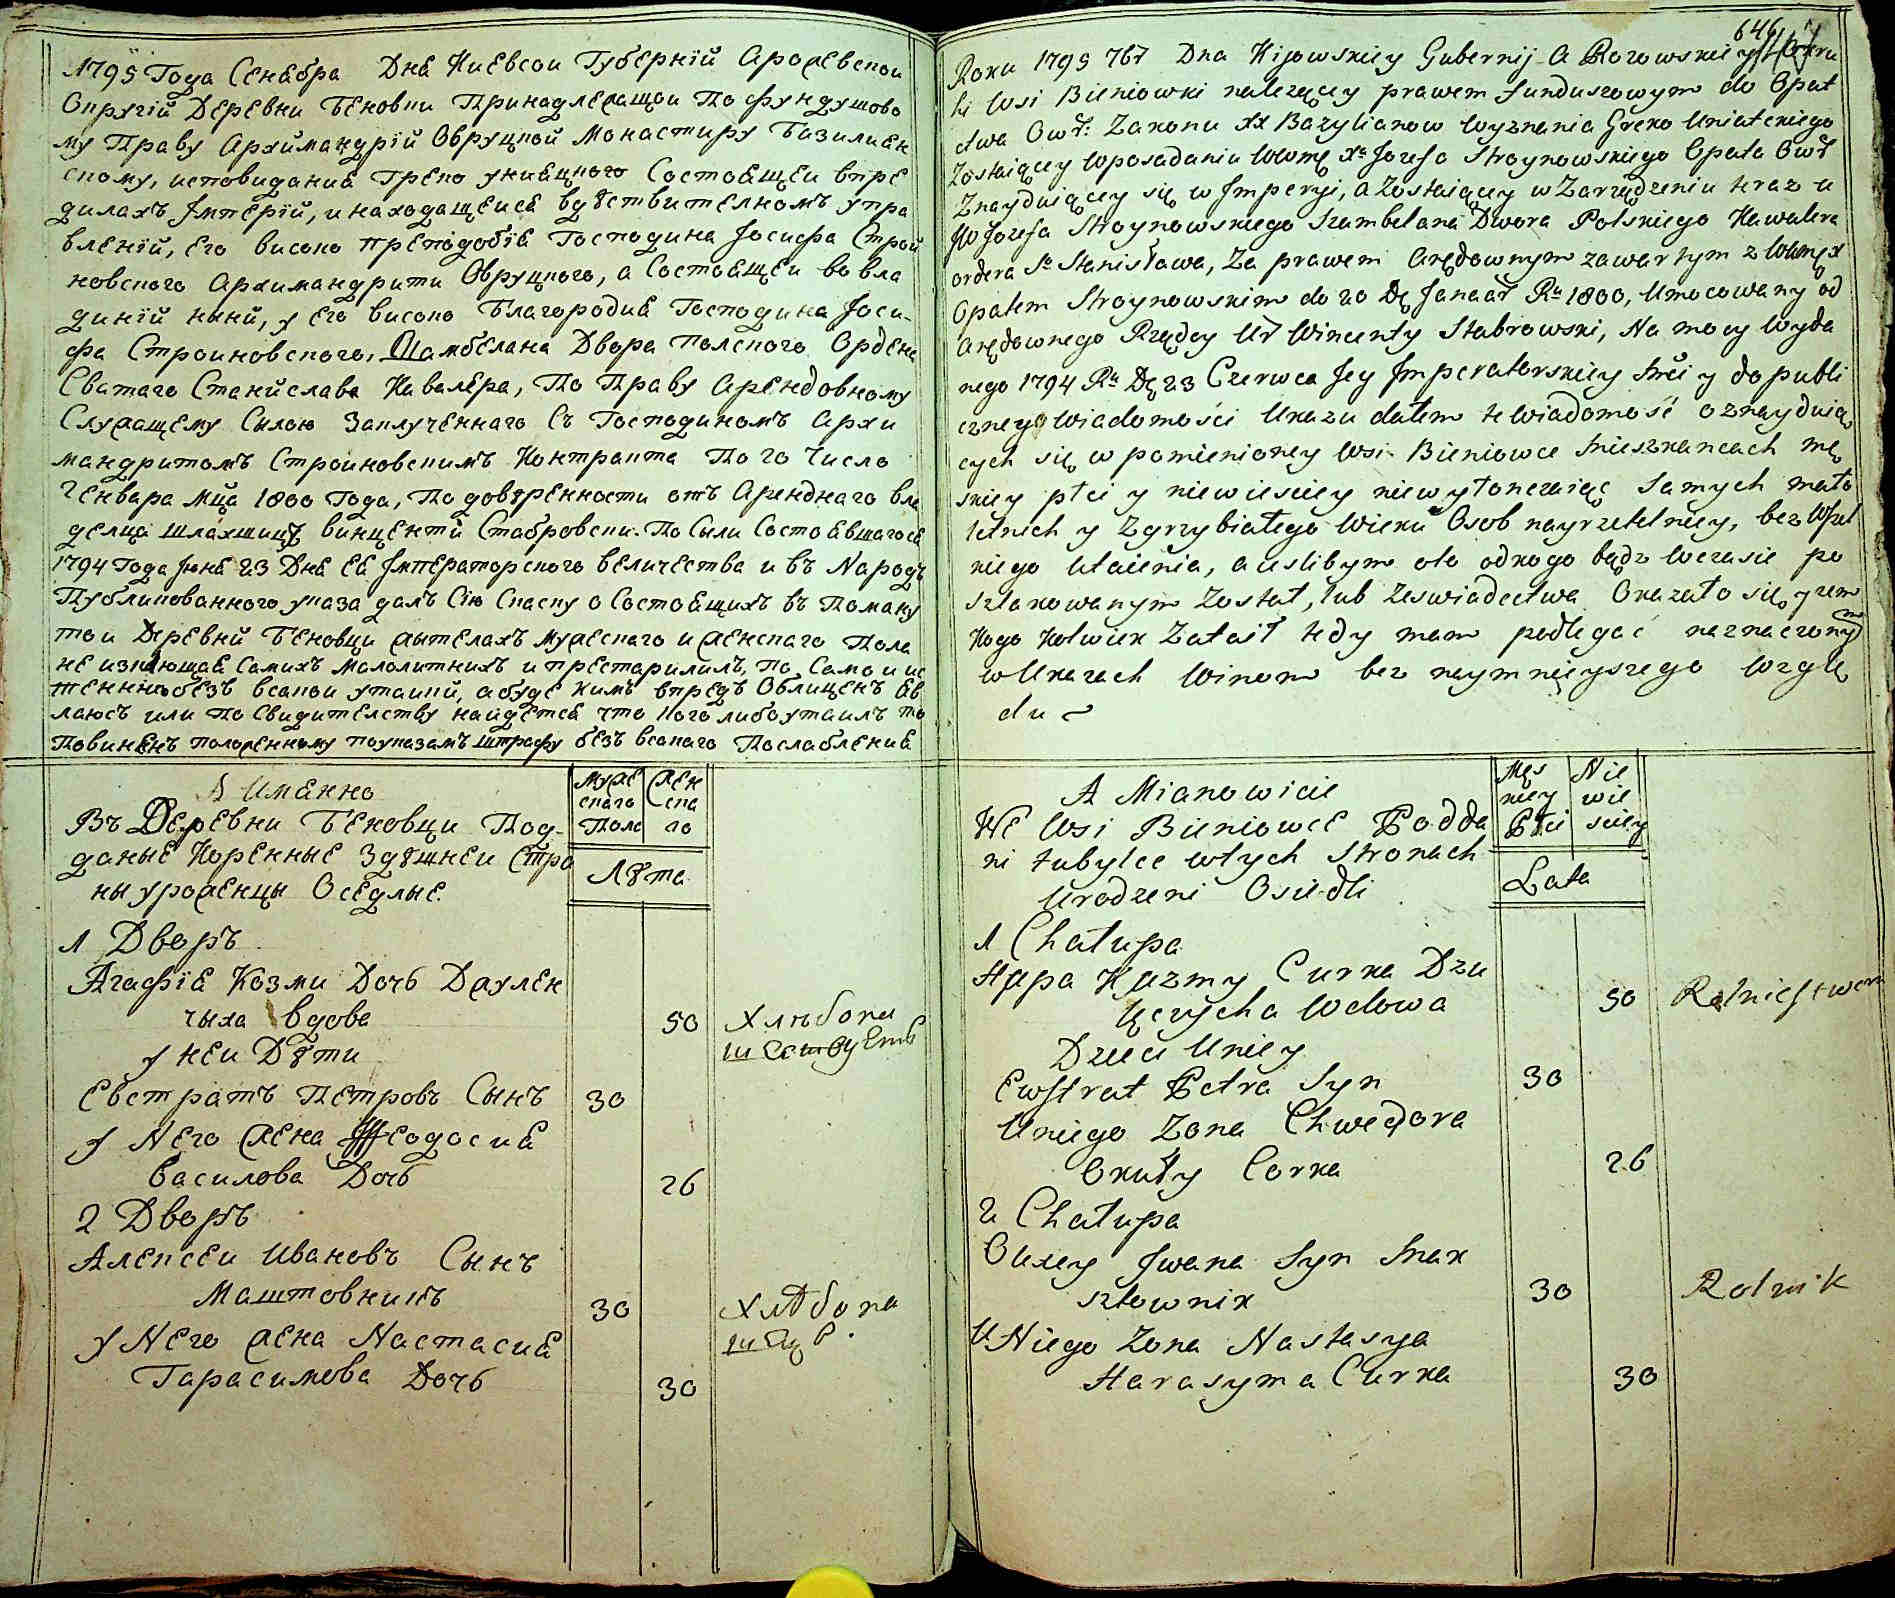 1795 Года Сенабра Дна Киевсои Губерніи
Округій Деревни Беновки Принадлежащои По фундушово
му Праву Архимандрій Овруцкой Монастиру Базилиан
скому, исповиданиа Греко униацкого Состоащеи впре
дилахъ Імперій, и находащейса вдѣствителномъ упра
вленій, Его високо преподобіа Господина Іосифа Строй
новского Архимандрити Овруцкого, а Состоащеи во вла
диній нынй, у Его високо Благородиа Господина Іоси-
фа Строиновского, Шамбелана Двора полского Ордена
Сватаго Станислава Кавалера, По Праву Арендовному
Служащему Силою Заключеннаго Съ Господиномъ Архи
мандритомъ Строиновскимъ Контракта По 20 Число
Генвара Мца 1800 Года, По довѣренности отъ Аренднаго вла
делца шлахтичъ винценти Стабровски. По Сили Состоавшагоса
1794 Года Іюна 23 Дна Еа Імператорского величества и въ Народъ
Публикованного указа далъ Сію Скаску о Состоащихъ въ Поману
тои Деревнй Беновци жителахъ мужескаго и женскаго Пола
не изключаа Самихъ малолитнихъ и престарилихъ, по Самои ис
тенни безъ всакои утаики, а буде кимъ впредъ Облиценъ Ав
лаюсъ или по Свидителству найдетса что кого либо утаилъ то
Повиненъ положенному по указамъ штрафу безъ всакаго Послаблениа
А Имaнно
Муже
скаго
Пола
Жен
ска
го
Въ Деревни Беновци Под-
даные Коренные Здѣшнеи Стро
ны уроженцы Оседлые.
Лѣта
1 Дворъ
Агафіа Козми Дочь Джулен
чыха вдова 50 Хлѣбопа
шествуетъ
у неи Дѣти
Евстратъ Петровъ Сынъ 30
у Него жена Феодосиа
василова Дочь 26
2 Дворъ
Алексеи Ивановъ Сынъ
Маштовникъ 30 Хлѣбопа
шецъ.
у Него жена Настасиа
Гарасимова Дочь 30
646
Roku 1795 7br Dna Kijowskiey Gubernij
ki Wsi Bieniowki należący prawem funduszowym do Opat
ctwa Owr: Zakonu XX Bazylianow Wyznania Greko Uniatckiego
Zostaiącey Wposadaniu WJmę Xa Jozefa Stroynowskiego Opata Owr
Znayduiącey się w Jmperyi, a Zostaiącey w Zarządzeniu teraz u
JW Jozefa Stroynowskiego Szambelana Dwora Polskiego Kawalera
ordera So Stanisława, Za prawem Arędownym zawartym z WJmęx
Opatem Stroynowskim do 20 Dę Januar Ru 1800, Umocowany od
Arędownego Rządcy Ur Wincenty Stabrowski, Na mocy Wyda
nego 1794 Ru Dę 23 Czerwca Jey Jmperatorskiey Mści y do publi
czney wiadomości Ukazu dałem tę Wiadomość o znayduią
cych się w pomienioney Wsi Bieniowce Mieszkancach mę
skiey płci y niewiesciey niewyłonczaiąc Samych mało
letnich y Zgrzybiałego Wieku Osob nayrzetelniey, bez Wszel
kiego Utaienia, a ieslibym oto odkogo bądz Wczasie po
szlakowanym Został, lub Zeswiadectwa Okazało się, żem
Kogo Kolwiek Zataił tedy mam podlegać naznaczonym
w Ukazach Winom bez naymnięyszego Wzglę
du
A Mianowicie
Męs
kiey
Płci
Nie
wie
sciey
We Wsi Bieniowce Podda
ni tubylce wtych Stronach
Urodzeni Osiedli
Lata
1 Chałupa
Hapa Kuzmy Curka Dzu
lęczycha Wdowa 50 Rolnictwem
Dzieci Uniey
Ewstrat Petra Syn 30
Uniego Zona Chwedora
Okuły Corka 26
2 Chałupa
Olixey Jwana Syn Mak
sztownik 30 Rolnik
U Niego Zona Nastasya
Harasyma Curka 30